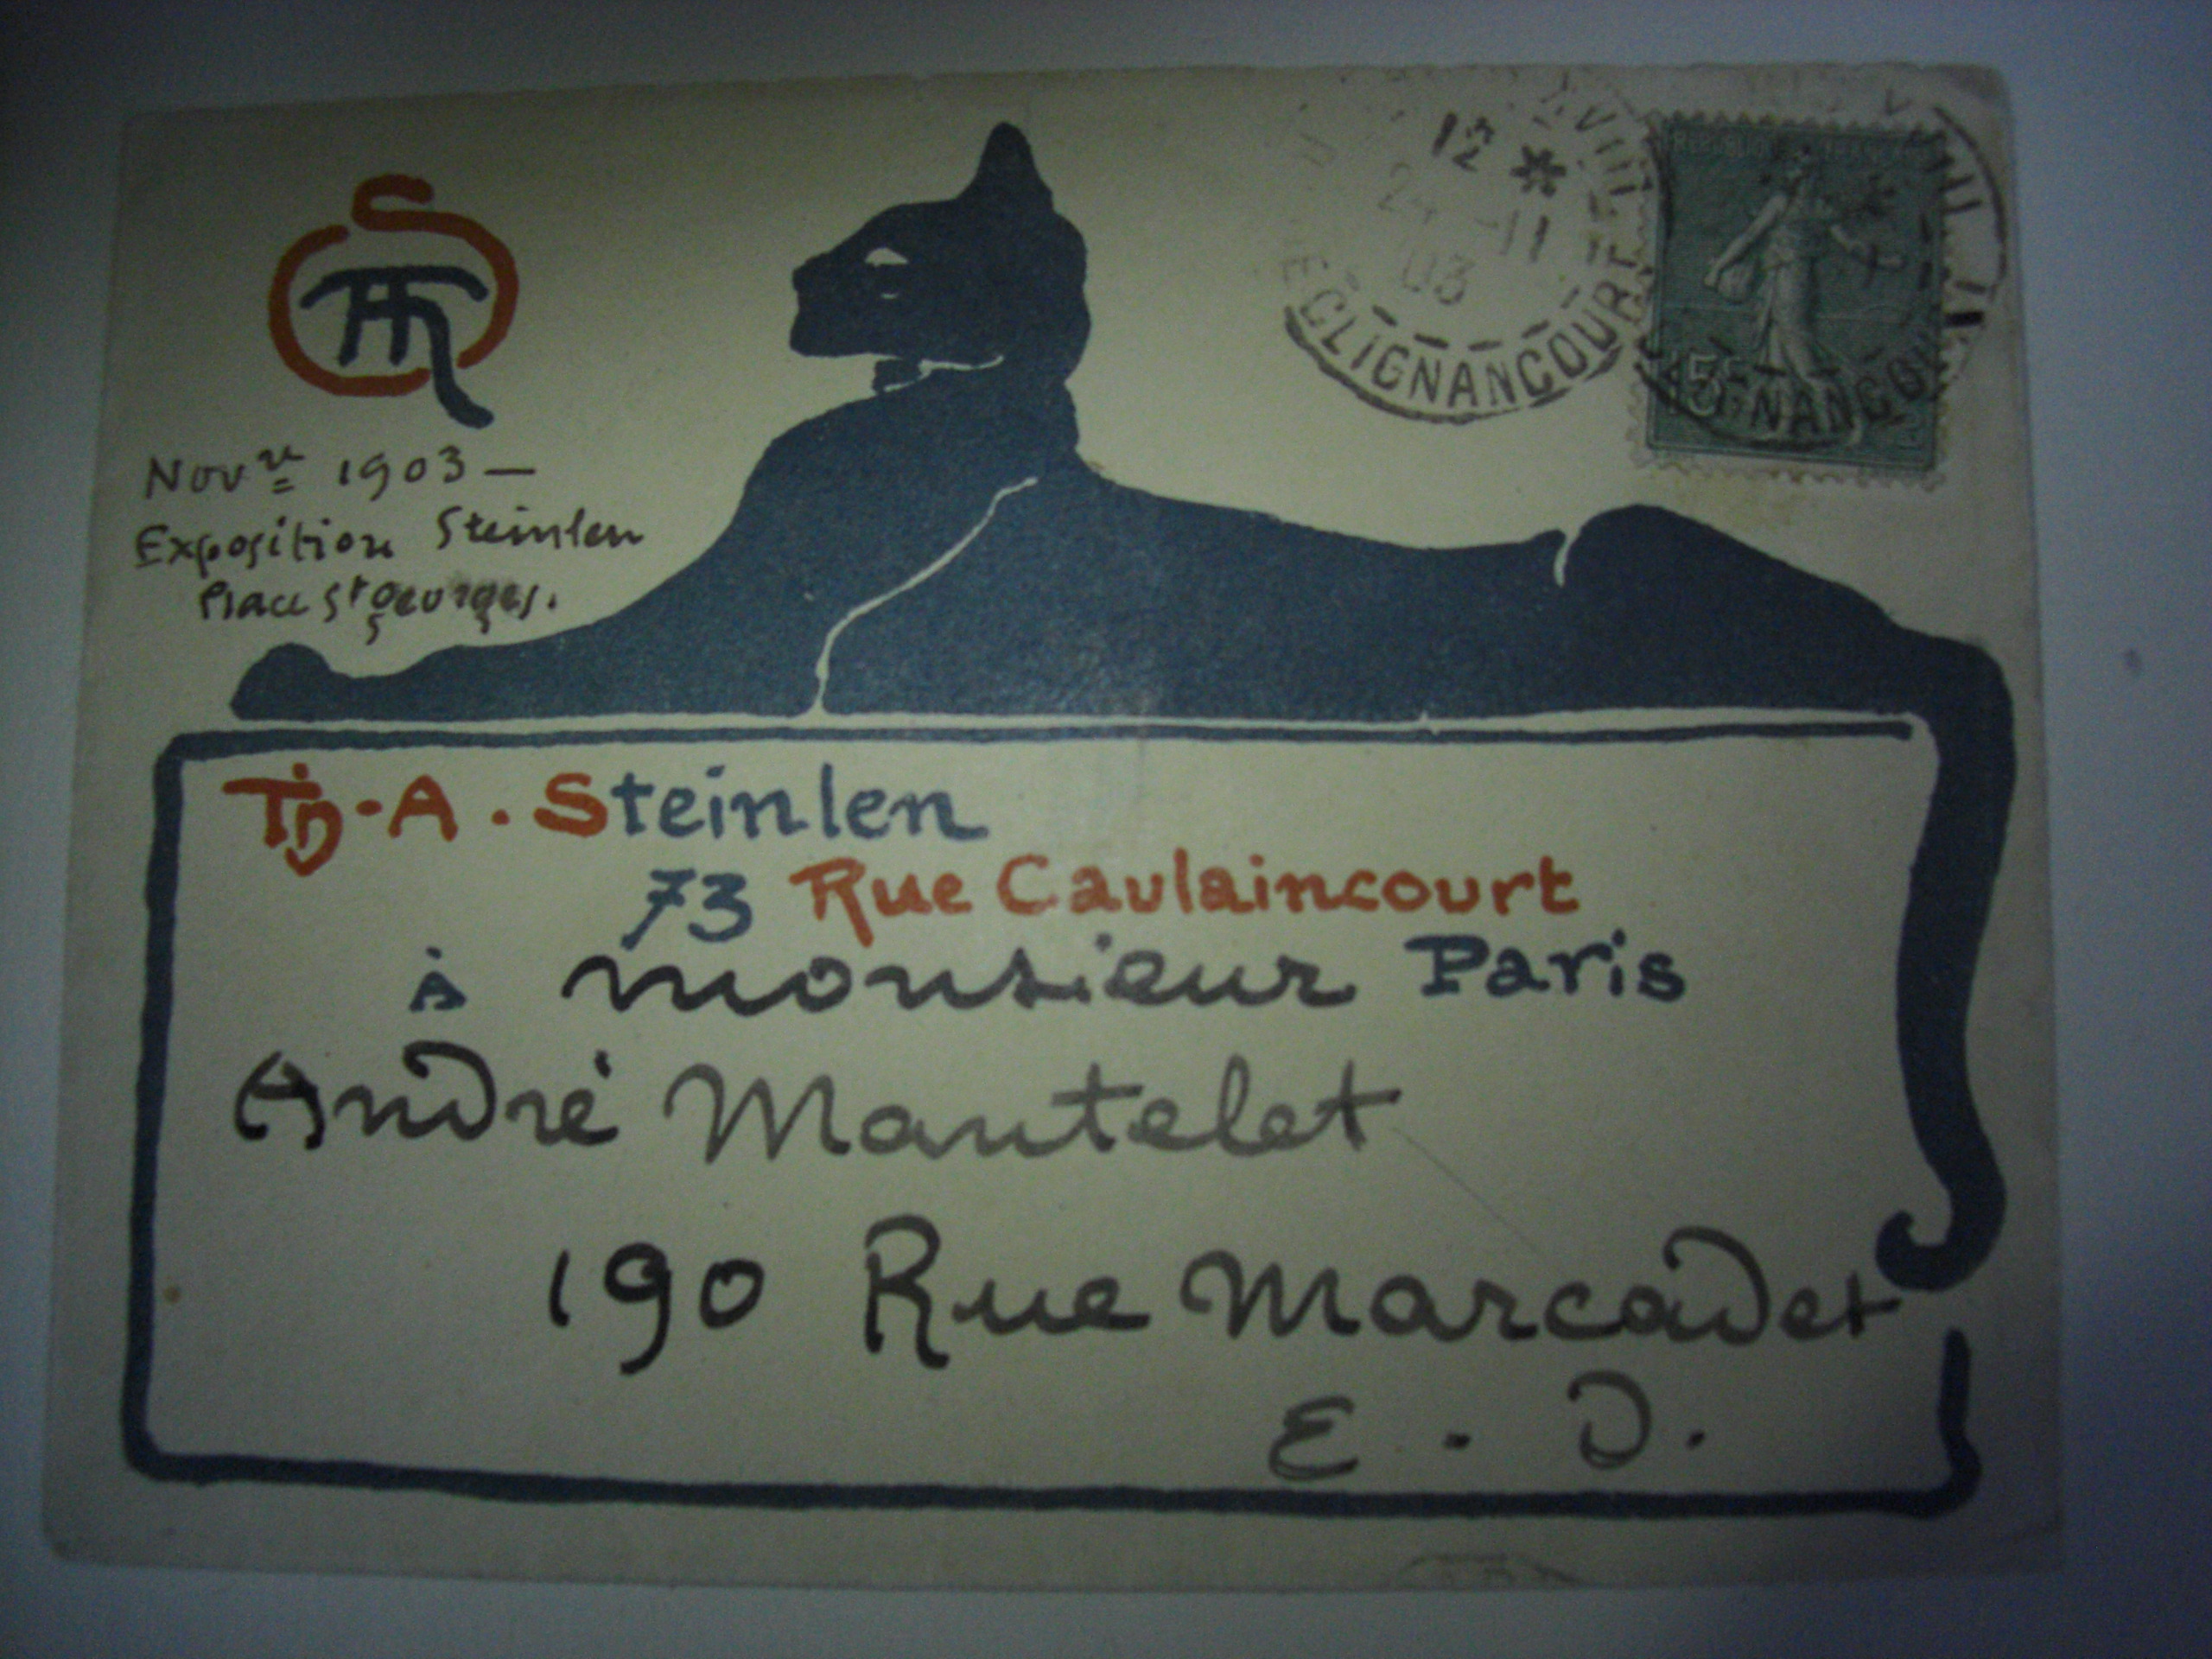 Novre 1903 —
Exposition Steinlen
Place St Georges.
12
24 -11
03
CLIGNANCOURT
15c
Th-A. Steinlen
73 Rue Caulaincourt
Paris
à monsieur
André Mantelet
190 Rue Marcadet
E. V.